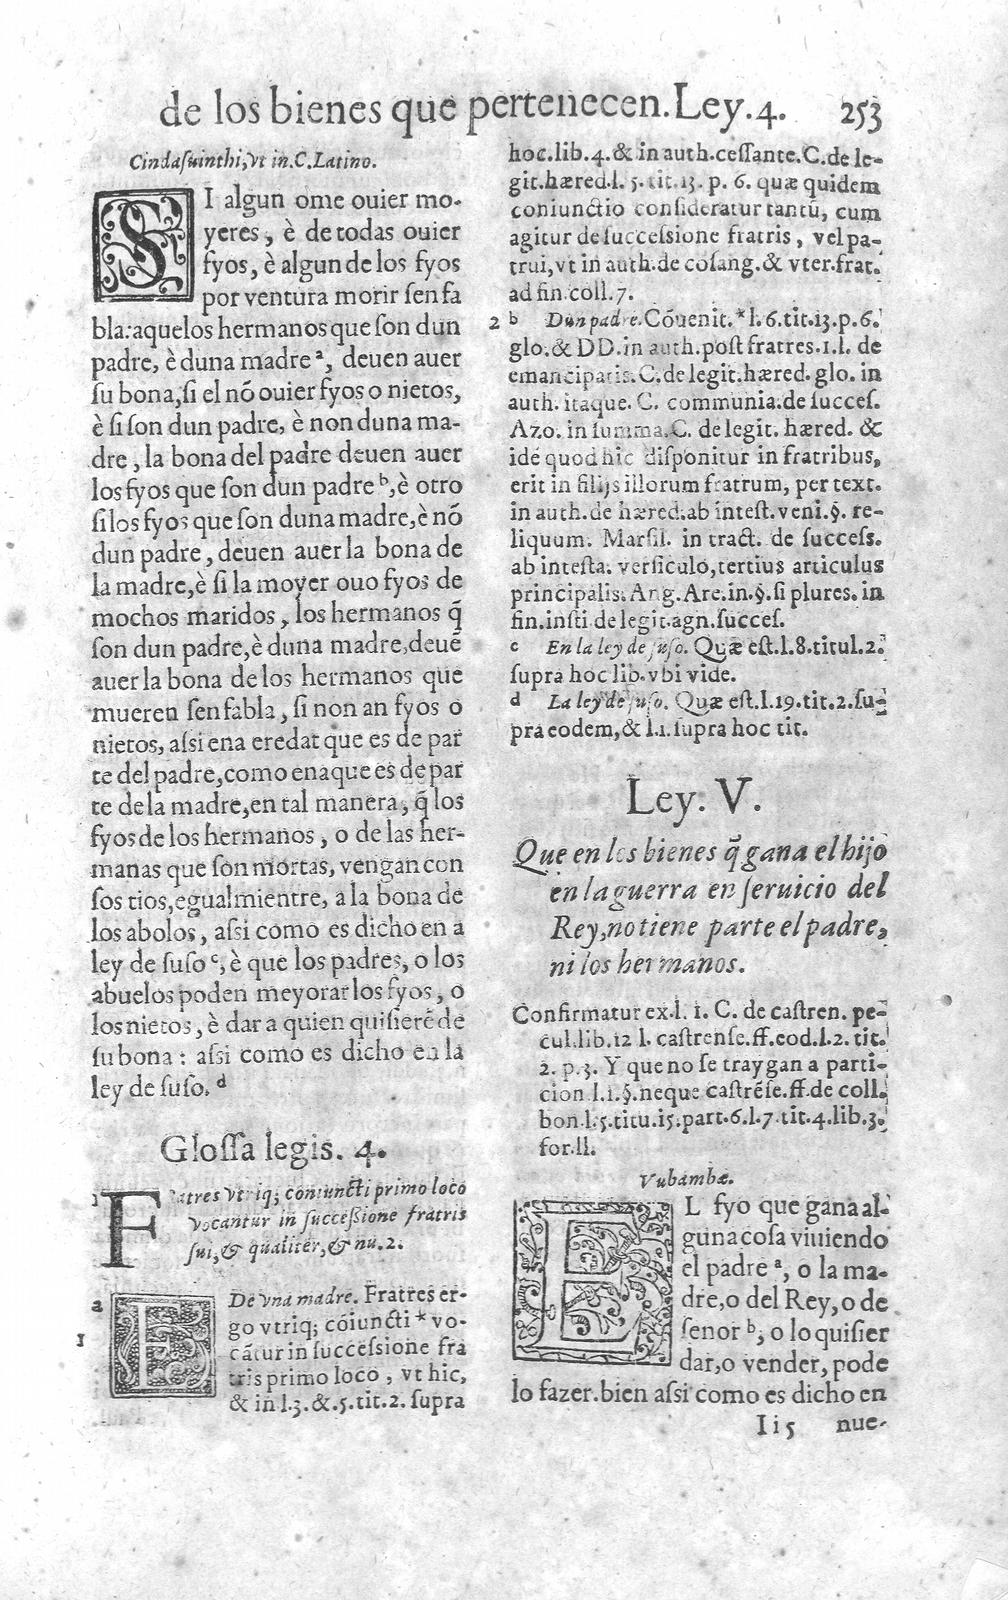 de los bienes que pertenecen. Ley. 4. 253
Cindaſuinthi, vt in. C. Latino.
SI algun ome ouier mo-
yeres, è de todas ouier
fyos, è algun de los fyos
por ventura morir ſen fa
bla: aquelos hermanos que ſon dun
padre, è duna madre ª, deuen auer
ſu bona, ſi el nõ ouier fyos o nietos,
è ſi ſon dun padre, è non duna ma-
dre, la bona del padre deuen auer
los fyos que ſon dun padre ᵇ, è otro
ſi los fyos que ſon duna madre, è nõ
dun padre, deuen auer la bona de
la madre, è ſi la moyer ouo fyos de
mochos maridos, los hermanos q̃
ſon dun padre, è duna madre, deuẽ
auer la bona de los hermanos que
mueren ſen fabla, ſi non an fyos o
nietos, aſsi en a eredat que es de par
te del padre, como en aque es de par
te de la madre, en tal manera, q̃ los
fyos de los hermanos, o de las her-
manas que ſon mortas, vengan con
ſos tios, egualmientre, a la bona de
los abolos, aſsi como es dicho en a
ley de ſuſo ᶜ, è que los padres, o los
abuelos poden meyorar los fyos, o
los nietos, è dar a quien quiſierẽ de
ſu bona: aſsi como es dicho en la
ley de ſuſo. ᵈ
Gloſſa legis. 4.
1 Fratres vtriq; coniuncti primo loco
vocantur in ſucceſsione fratris
ſui, & qualiter, & nu. 2.
a De vna madre. Fratres er-
1 go vtriq; cõiuncti * vo-
cãtur in ſucceſsione fra
tris primo loco, vt hic,
& in l. 3. &. 5. tit. 2. ſupra
hoc. lib. 4. & in auth. ceſſante. C. de le-
git. hæred. l. 5. tit. 13. p. 6. quæ quidem
coniunctio conſideratur tantũ, cum
agitur de ſucceſsione fratris, vel pa-
trui, vt in auth. de coſang. & vter. frat.
ad fin. coll. 7.
2 b Dun padre. Cõuenit. * l. 6. tit. 13. p. 6.
glo. & DD. in auth. poſt fratres. 1. l. de
emancipatis. C. de legit. hæred. glo. in
auth. itaque. C. communia. de ſucceſ.
Azo. in ſumma. C. de legit. hæred. &
idẽ quod hic diſponitur in fratribus,
erit in filijs illorum fratrum, per text.
in auth. de hæred. ab inteſt. veni. §. re-
liquum. Marſil. in tract. de ſucceſs.
ab inteſta. verſiculo, tertius articulus
principalis. Ang. Are. in. §. ſi plures. in
fin. inſti. de legit. agn. ſucceſ.
c En la ley de ſuſo. Quæ eſt. l. 8. titul. 2.
ſupra hoc lib. vbi vide.
d La ley de ſuſo. Quæ eſt. l. 19. tit. 2. ſu-
pra eodem, & l. 1. ſupra hoc tit.
Ley. V.
Que en los bienes q̃ gana el hijo
en la guerra en ſeruicio del
Rey, no tiene parte el padre,
ni los hermanos.
Confirmatur ex. l. 1. C. de caſtren. pe-
cul. lib. 12 l. caſtrenſe. ff. eod. l. 2. tit.
2. p. 3. Y que no ſe traygan a parti-
cion. l. 1. §. neque caſtrẽſe. ff. de coll.
bon. l. 5. titu. 15. part. 6. l. 7. tit. 4. lib. 3.
for. ll.
Vubambæ.
EL fyo que gana al-
guna coſa viuiendo
el padre ª, o la ma-
dre, o del Rey, o de
ſenor ᵇ, o lo quiſier
dar, o vender, pode
lo fazer. bien aſsi como es dicho en
Ii 5 nue-